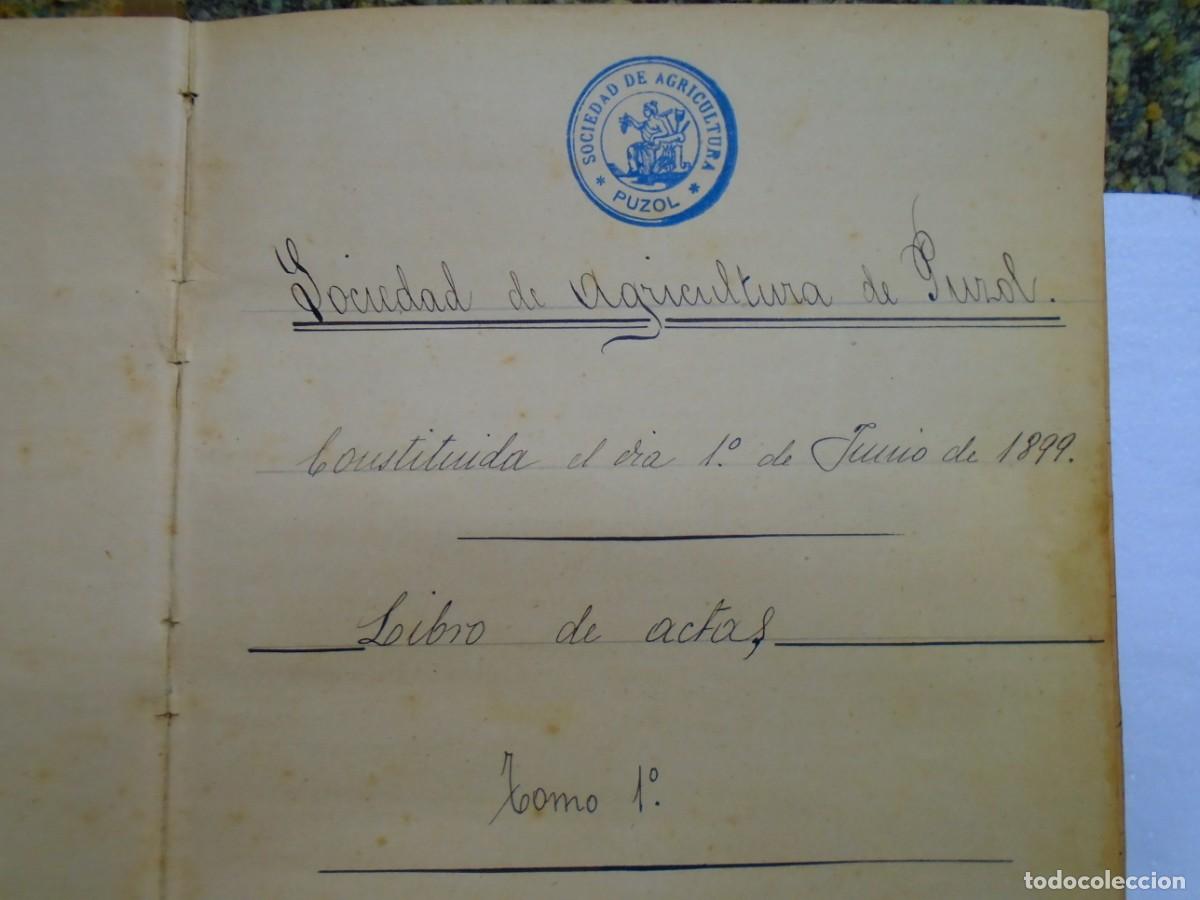 SOCIEDAD DE AGRICULTURA
* PUZOL *
Sociedad de Agricultura de Puzol.
Constituida el dia 1º. de Junio de 1899.
Libro de actas
Tomo 1º.
todocoleccion